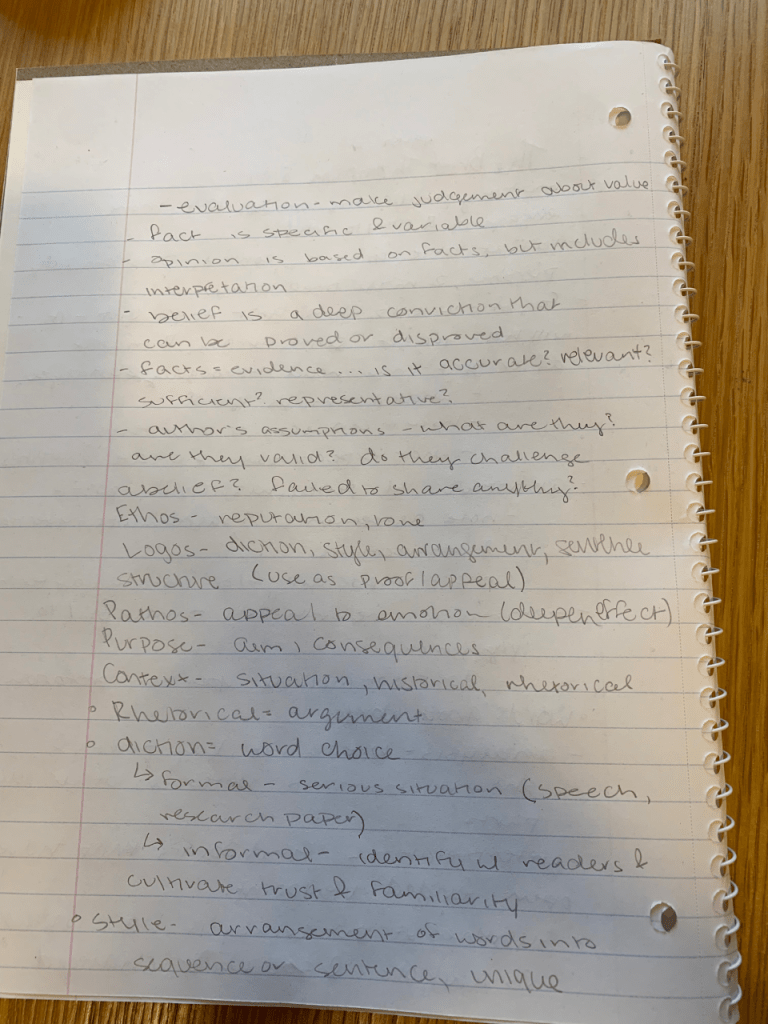 - evaluation - make judgement about value
- fact is specific & variable
- opinion is based on facts, but includes
interpretation
- belief is a deep conviction that
can be proved or disproved
- facts = evidence ... is it accurate? relevant?
sufficient? representative?
- author's assumptions - what are they?
are they valid? do they challenge
a belief? failed to share anything?
Ethos - reputation, tone
Logos - diction, style, arrangement, sentence
structure (use as proof/appeal)
Pathos - appeal to emotion (deepen effect)
Purpose - aim, consequences
Context - situation, historical, rhetorical
° Rhetorical = argument
° diction = word choice
↳ formal - serious situation (speech,
research paper)
↳ informal - identify w/ readers &
cultivate trust & familiarity
° Style - arrangement of words into
sequence or sentence, unique